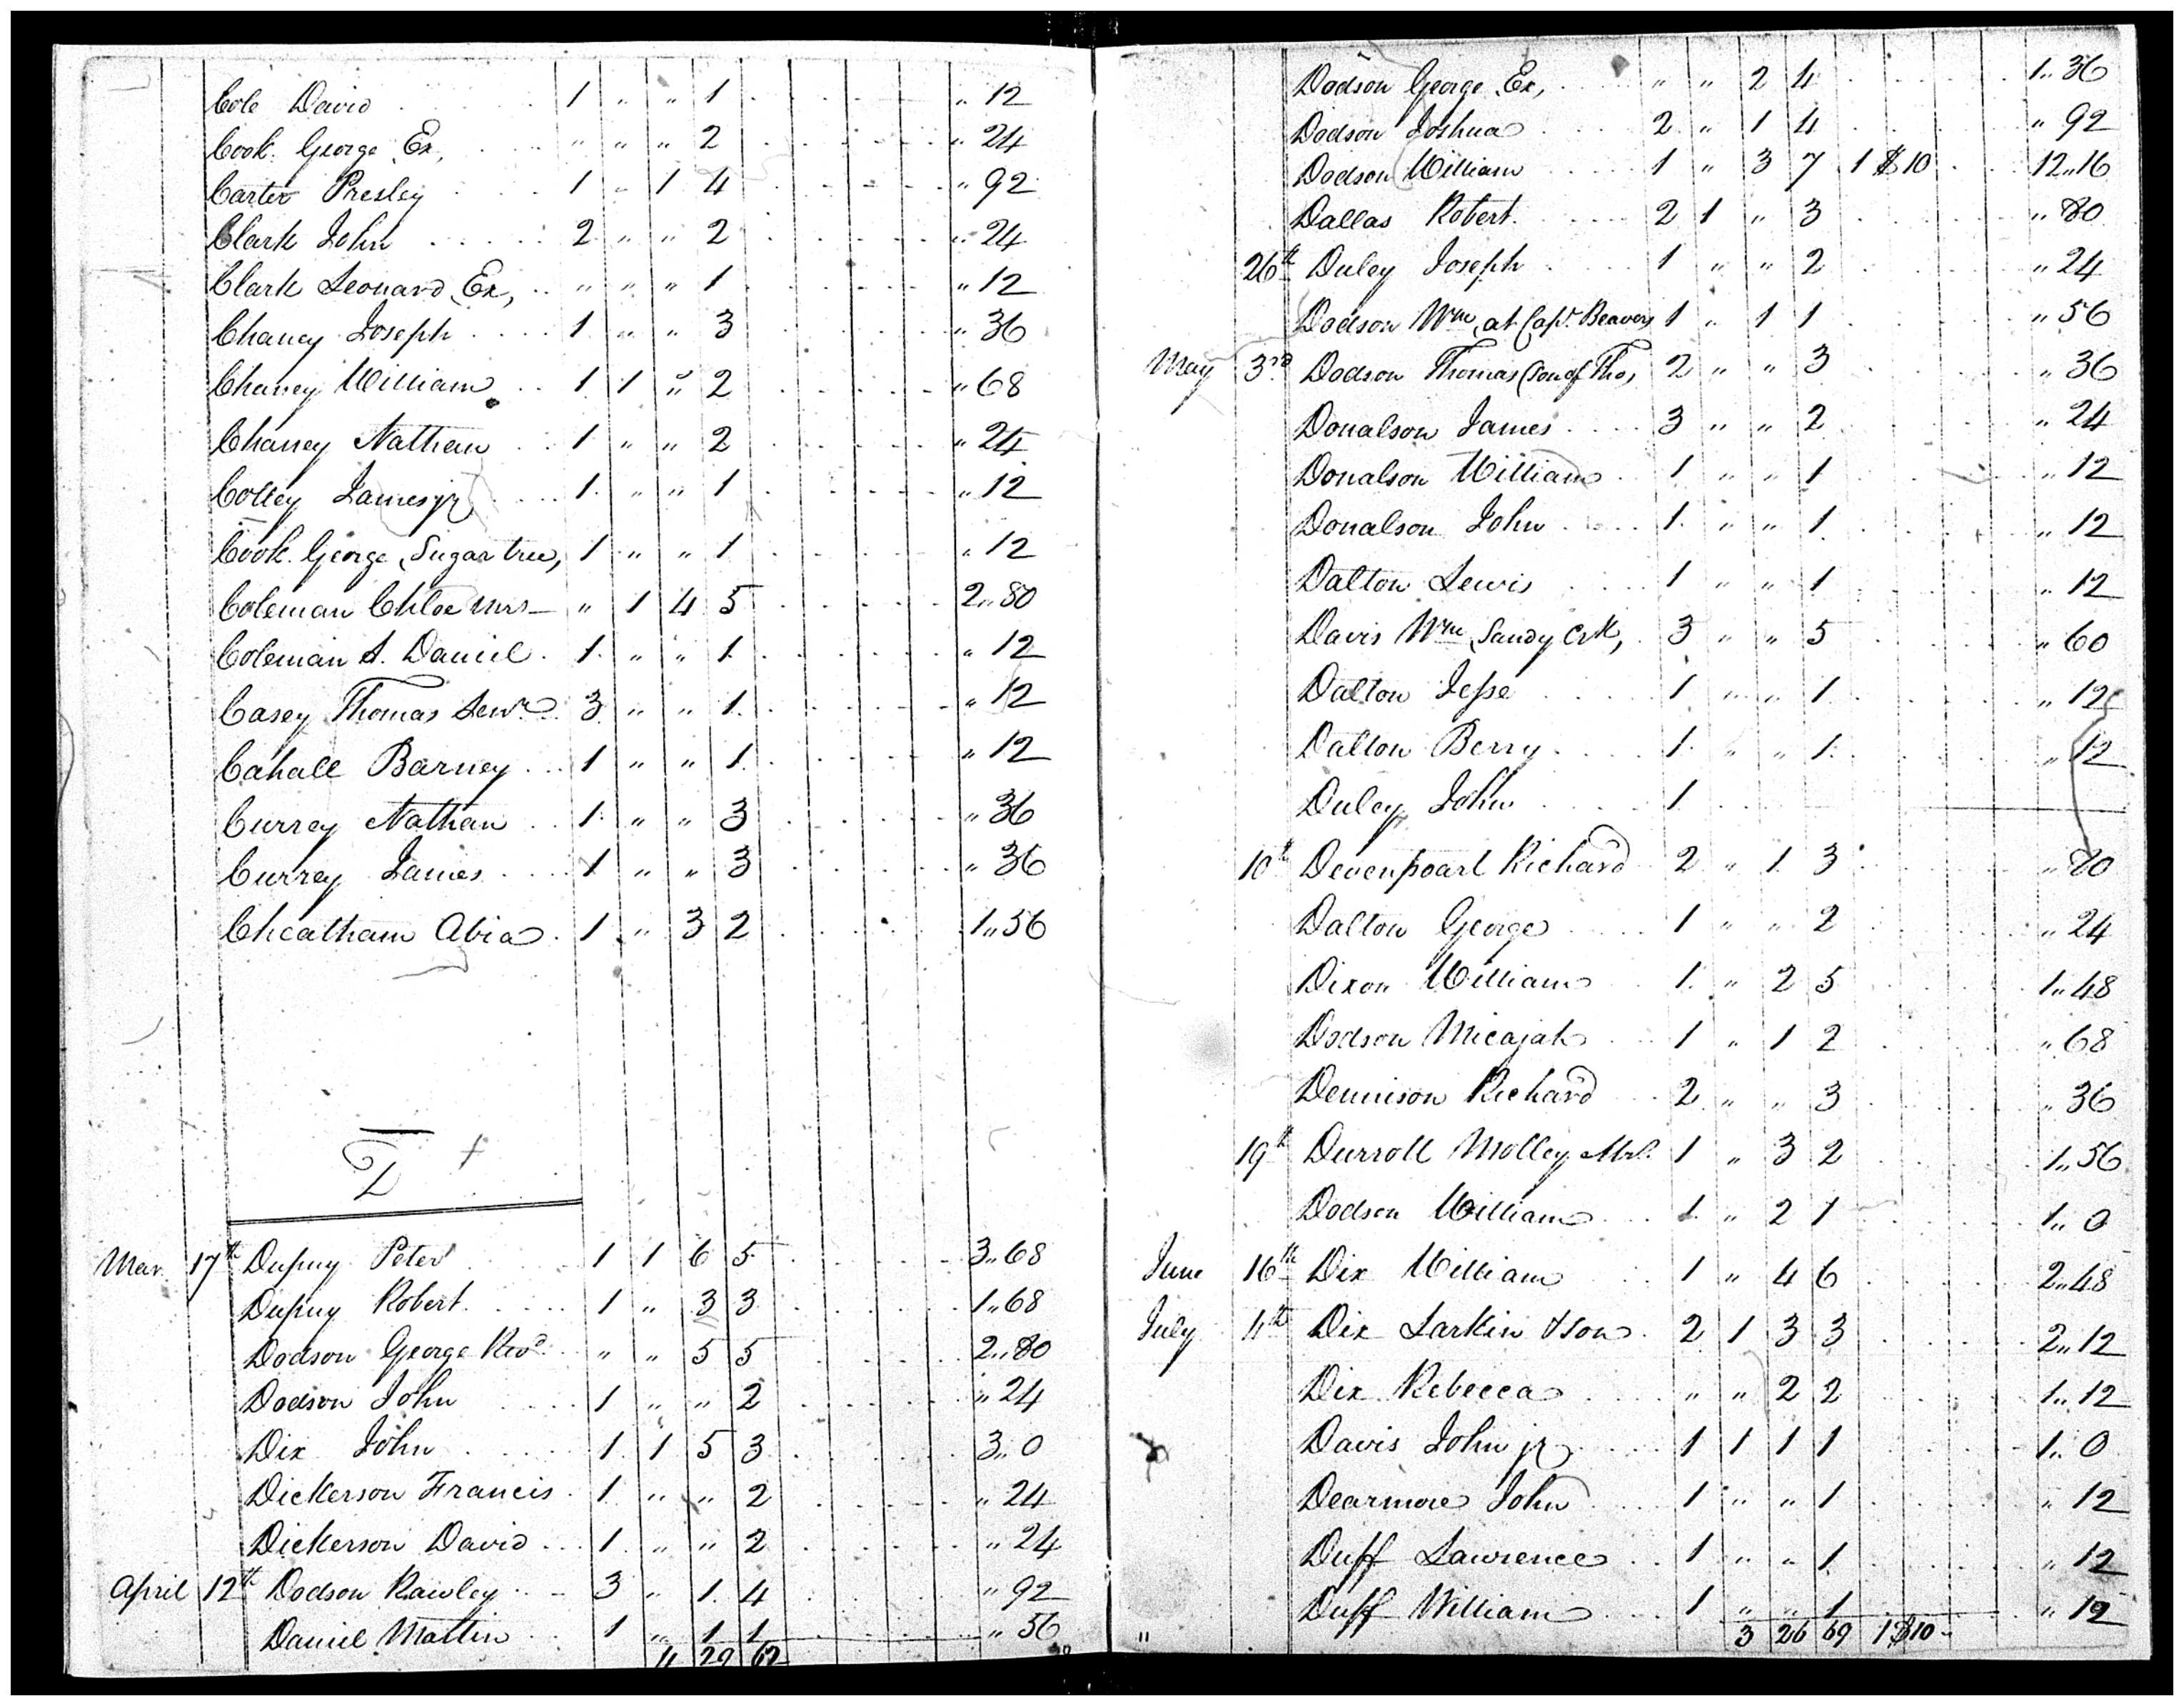 Cole David 1 " " 1 " 12
Cook George Ex, " " " 2 " 24
Carter Presley 1 " 1 4 " 92
Clark John 2 " " 2 " 24
Clark Leonard Ex, " " " 1 " 12
Chaney Joseph 1 " " 3 " 36
Chaney William 1 1 " 2 " 68
Chaney Nathan 1 " " 2 " 24
Colley James jr 1 " " 1 " 12
Cook George, Sugar tree, 1 " " 1 " 12
Coleman Chloe Mrs " 1 4 5 2"80
Coleman S. Daniel 1 " " 1 " 12
Casey Thomas Senr 3 " " 1 " 12
Cahall Barney 1 " " 1 " 12
Currey Nathan 1 " " 3 " 36
Currey James 1 " " 3 " 36
Cheatham Abia 1 " 3 2 1"56
D
Mar 17th Dupuy Peter 1 1 6 5 3"68
Dupuy Robert 1 " 3 3 1"68
Dodson George Revd " " 5 5 2"80
Dodson John 1 " " 2 " 24
Dix John 1 1 5 3 3"0
Dickerson Francis 1 " " 2 " 24
Dickerson David 1 " " 2 " 24
April 12th Dodson Rawley 3 " 1 4 " 92
Daniel Martin 1 " 1 1 " 56
4 29 62
Dodson George Ex, " " 2 4 1"36
Dodson Joshua 2 " 1 4 " 92
Dodson William 1 " 3 7 1 $10 12"16
Dallas Robert 2 1 " 3 " 80
26th Duley Joseph 1 " " 2 " 24
Dodson Wm, at Capt. Beavers 1 " 1 1 " 56
May 3rd Dodson Thomas (son of Tho, 2 " " 3 " 36
Donalson James 3 " " 2 " 24
Donalson William 1 " " 1 " 12
Donalson John 1 " " 1 " 12
Dalton Lewis 1 " " 1 " 12
Davis Wm Sandy Crk, 3 " " 5 " 60
Dalton Jesse 1 " " 1 " 12
Dalton Berry 1 " " 1 " 12
Duley John 1
10th Devenpoart Richard 2 " 1 3 " 80
Dalton George 1 " " 2 " 24
Dixon William 1 " 2 5 1"48
Dodson Micajah 1 " 1 2 " 68
Dennison Richard 2 " " 3 " 36
19th Durrott Molley Mrs. 1 " 3 2 1"56
Dodson William 1 " 2 1 1"0
June 16th Dix William 1 " 4 6 2"48
July 4th Dix Larkin & son 2 1 3 3 2"12
Dix Rebecca " " 2 2 1"12
Davis John jr 1 1 1 1 1"0
Dearmore John 1 " " 1 " 12
Duff Lawrence 1 " " 1 " 12
Duff William 1 " " 1 " 12
" 3 26 69 1 $10